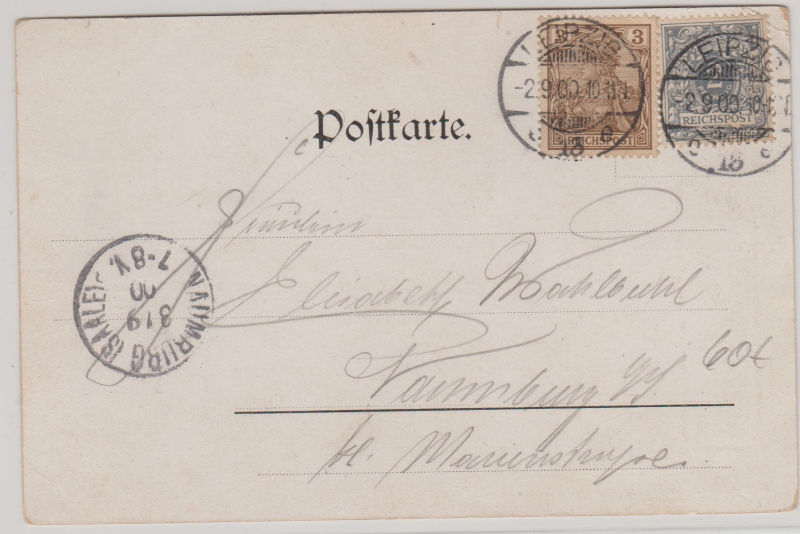 3
REICHSPOST
2
REICHSPOST
LEIPZIG
-2.9.00.10-11V.
13
e
LEIPZIG
2.9.00.10-11V.
13
e
Postkarte.
Fräulein
Elisabeth
Naumburg a/S.
kl. Marienstrasse.
60
NAUMBURG (SAALE)
3 / 9
00
7-8V.